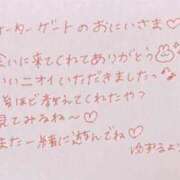 ーターゲートのおにいさま♡
会いに来てくれてありがとう
いいニオイいただきましたっ
ほど教えてくれたや?
見てみるね〜♡
また一緒に遊んでね♡
ゆずるより